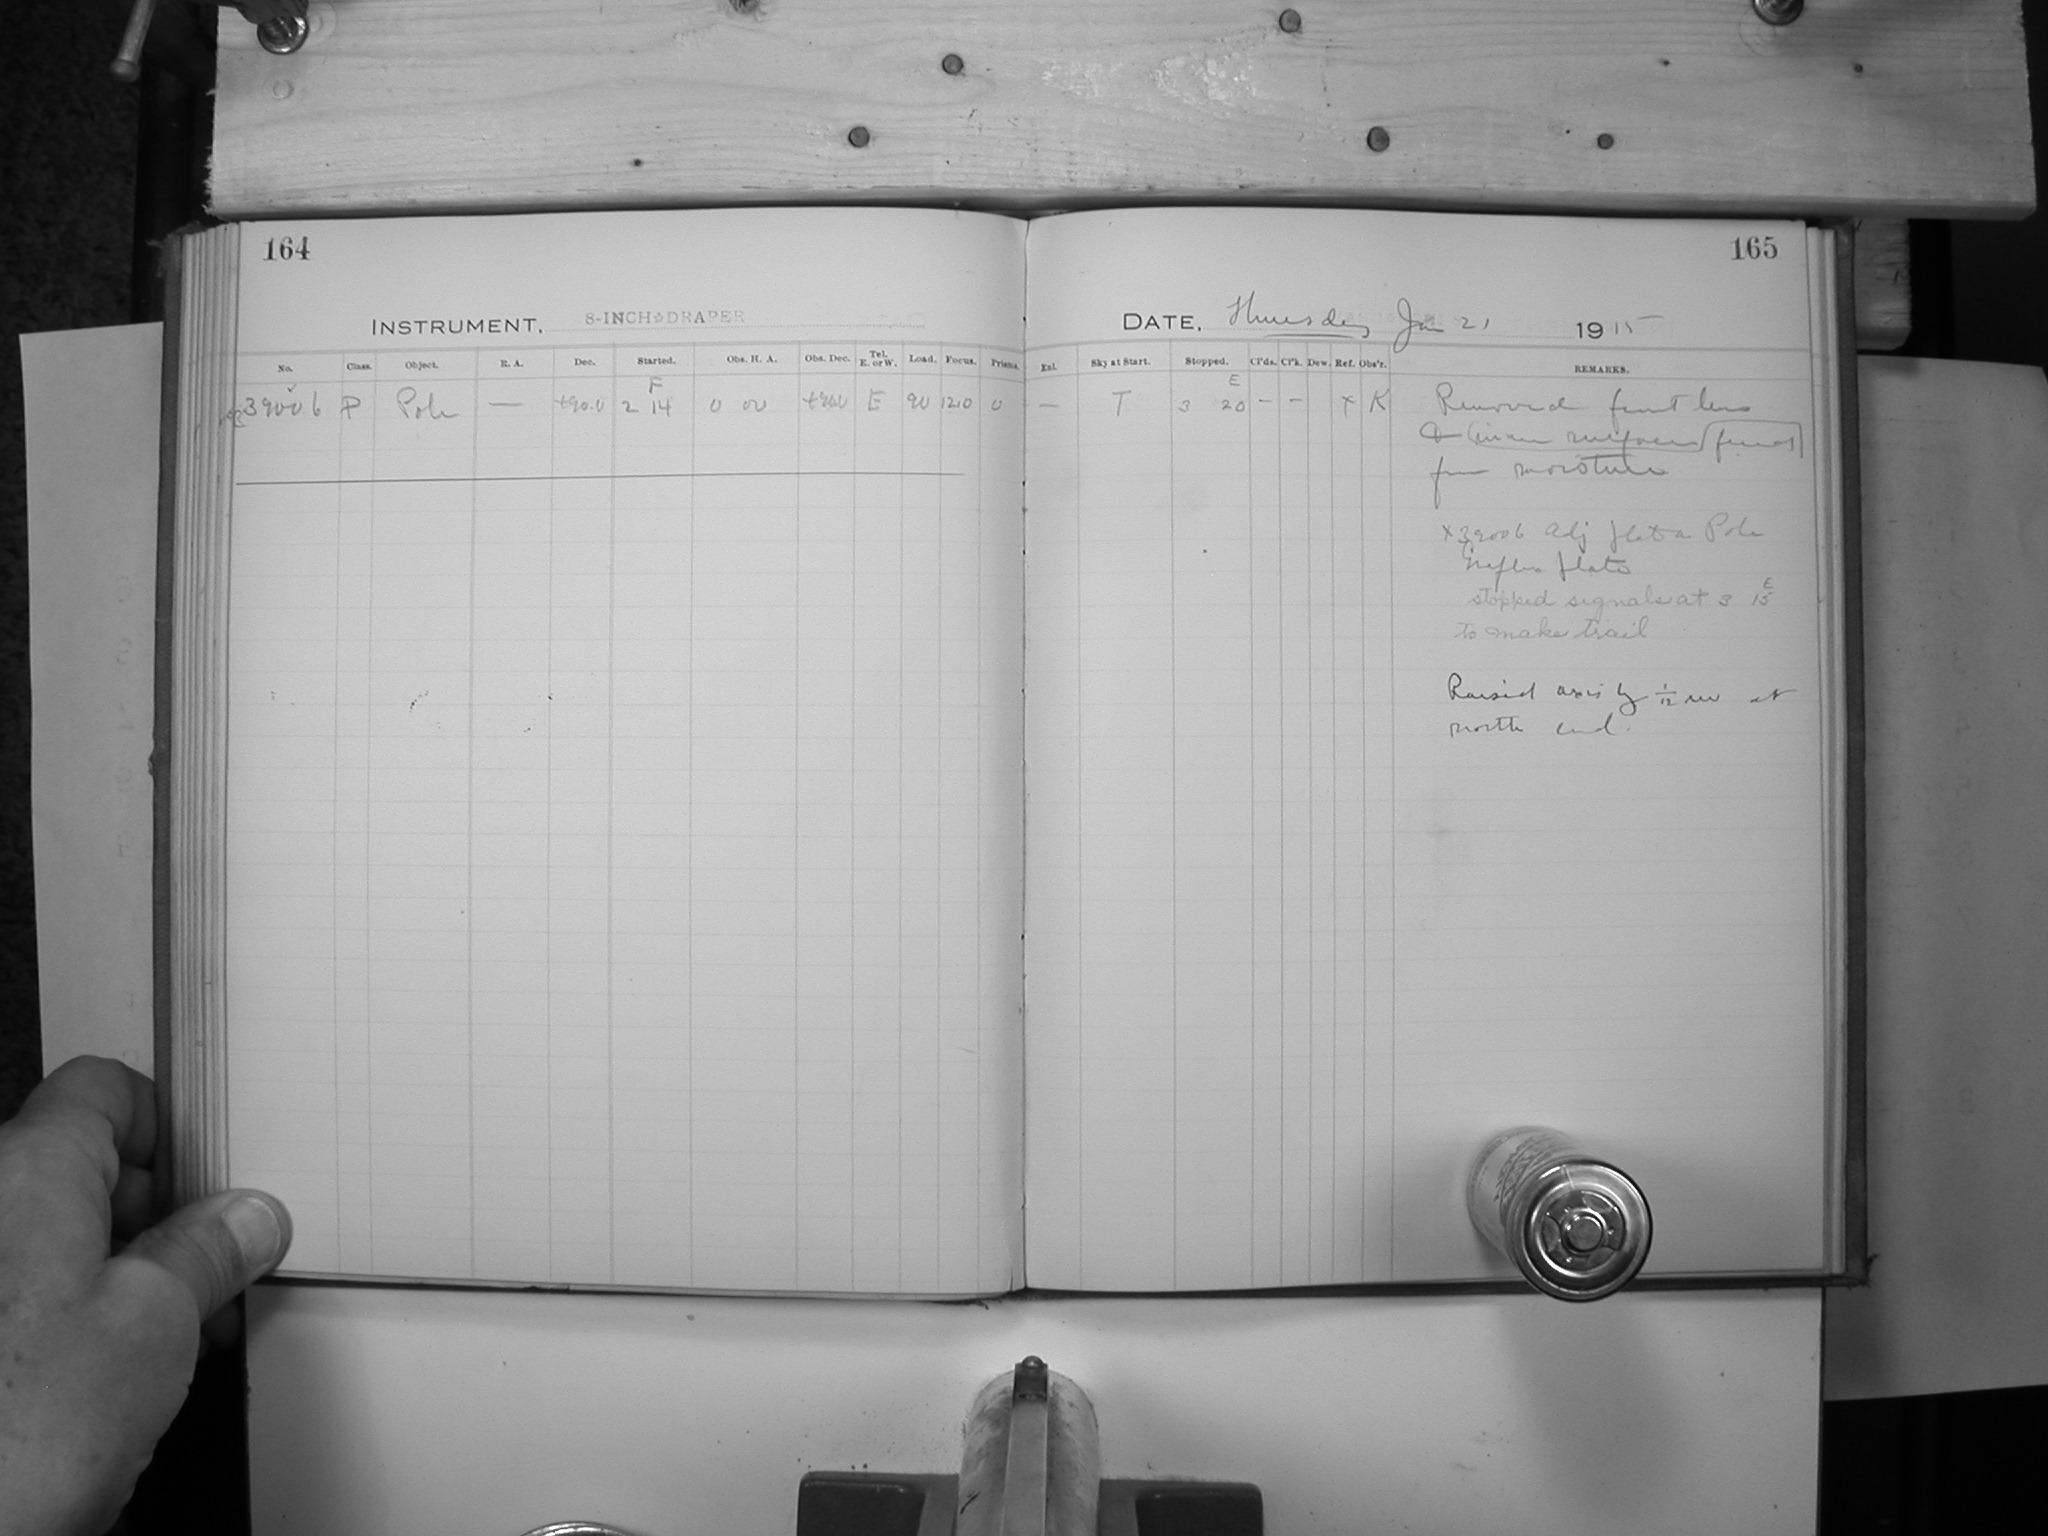 164
165
INSTRUMENT, 8-INCH DRAPER
DATE, Thursday Jan 21 1915
No. Class. Object. R. A. Dec. Started. Obs. H. A. Obs. Dec. Tel. E. or W. Load. Focus. Prisms.
Exl. Sky at Start. Stopped. Cl'ds. Cl'k. Dew. Ref. Obs'r. REMARKS.
F
39006 P Pole — +90.0 2 14 0 00 +90.0 E 90 1210 0
E
— T 3 20 – – x K Removed front lens
surfaces
from moisture
x 39006 Adj plate on Pole
plate
E
stopped signals at 3 15
to make trail
Raised axis by 1/12 rev at
north end.